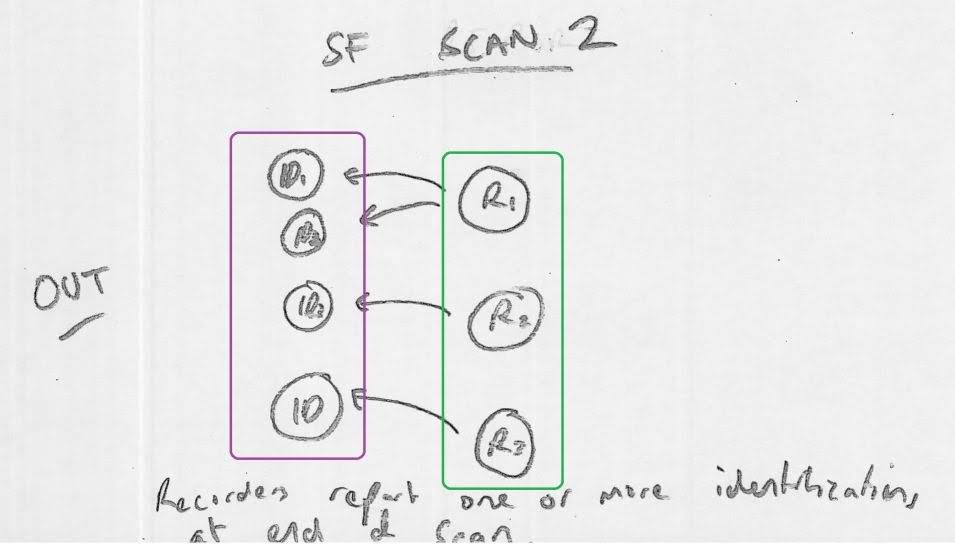 SF SCAN 2
ID1 R1
OUT
R2
ID R3
Recorders report one or more identifications
at end of scan.